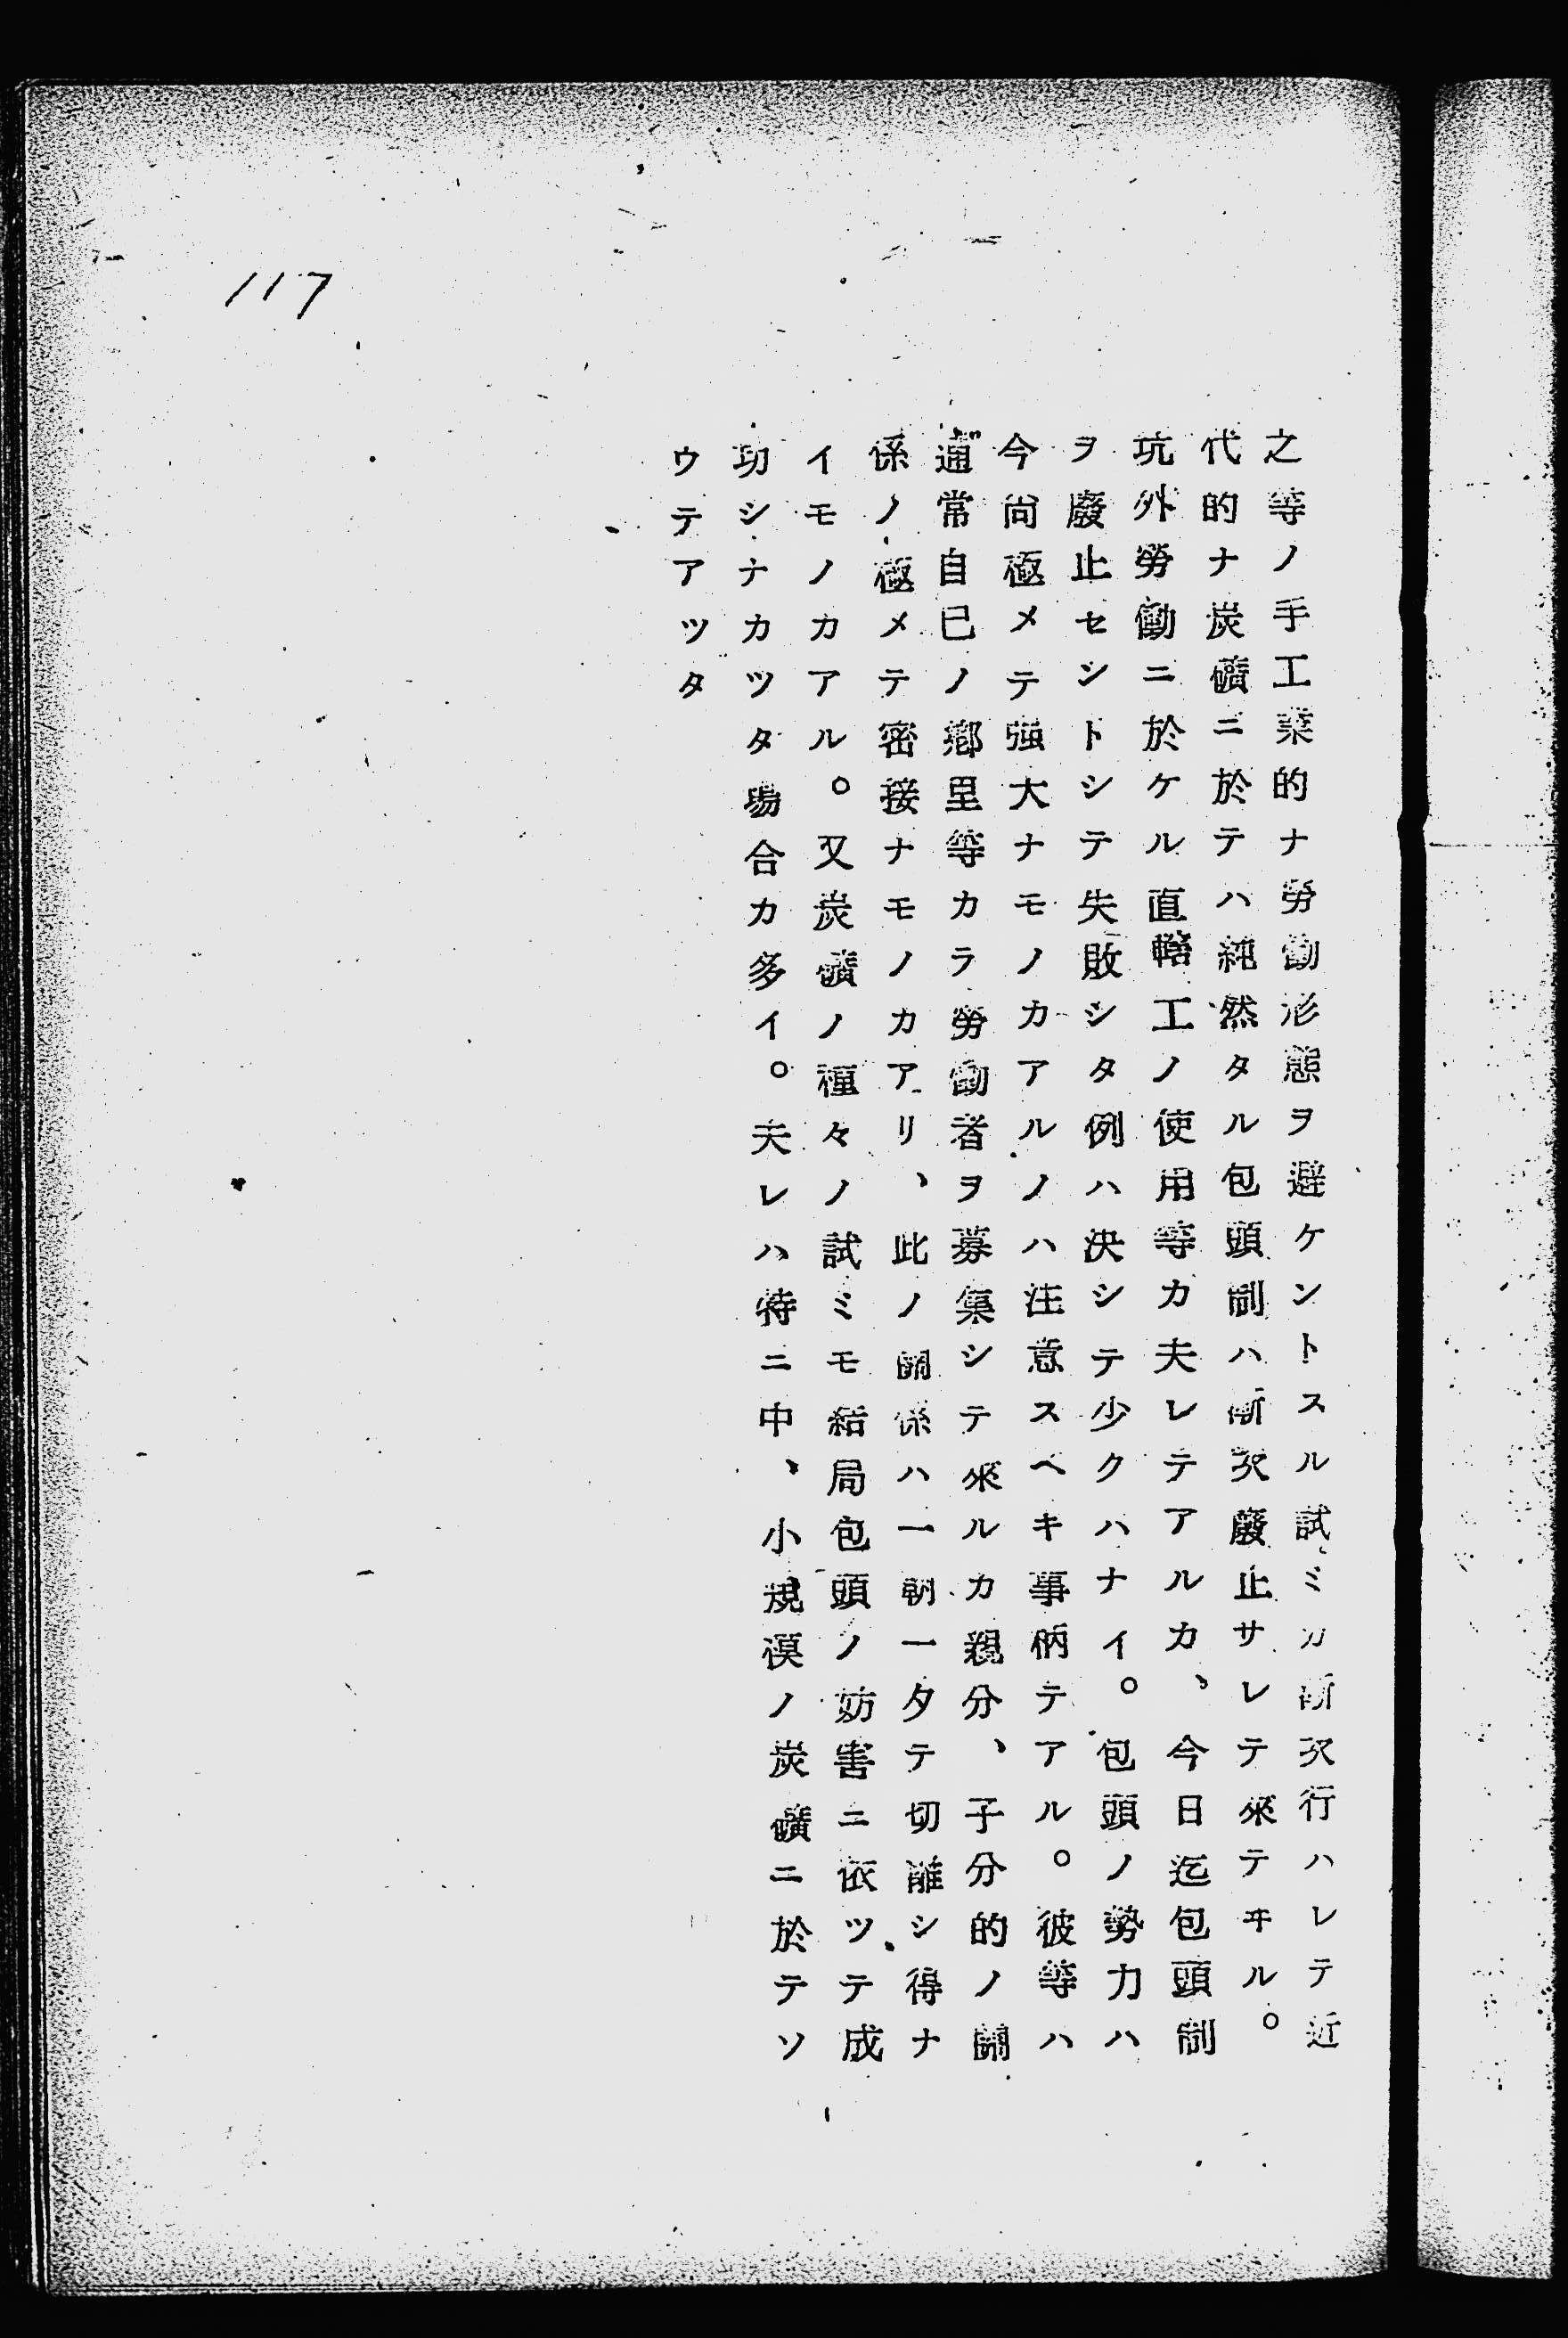 117
之等ノ手工業的ナ勞働形態ヲ避ケントスル試ミカ漸次行ハレテ近
代的ナ炭礦ニ於テハ純然タル包頭制ハ漸次廢止サレテ來テヰル。
坑外勞働ニ於ケル直轄工ノ使用等カ夫レテアルカ、今日迄包頭制
ヲ廢止セシトシテ失敗シタ例ハ決シテ少クハナイ。包頭ノ勢力ハ
今尙極メテ强大ナモノカアルノハ注意スヘキ事柄テアル。彼等ハ
通常自已ノ鄕里等カラ勞働者ヲ募集シテ來ルカ親分、子分的ノ關
係ノ極メテ密接ナモノカアリ、此ノ關係ハ一朝一夕テ切離シ得ナ
イモノカアル。又炭礦ノ種々ノ試ミモ結局包頭ノ妨害ニ依ツテ成
功シナカツタ場合カ多イ。夫レハ特ニ中、小規模ノ炭礦ニ於テソ
ウテアツタ